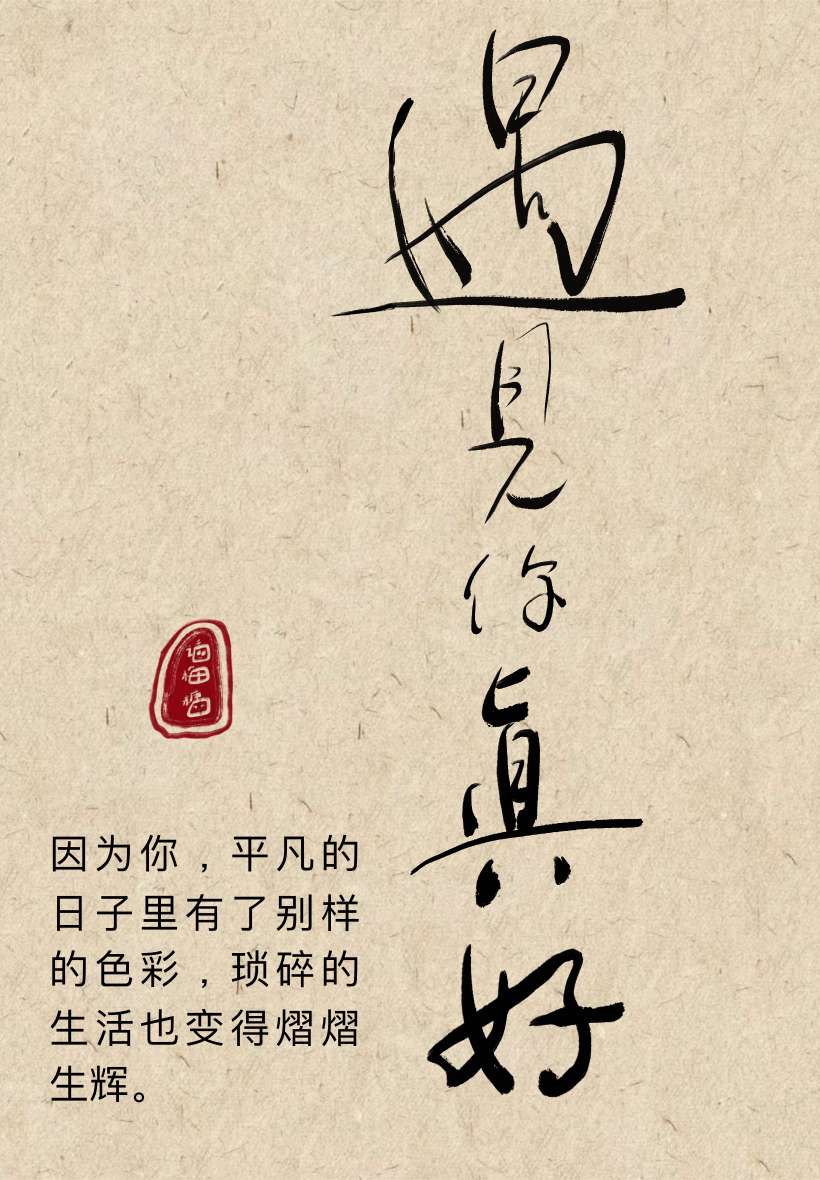 遇見你真好
因为你，平凡的
日子里有了别样
的色彩，琐碎的
生活也变得熠熠
生辉。